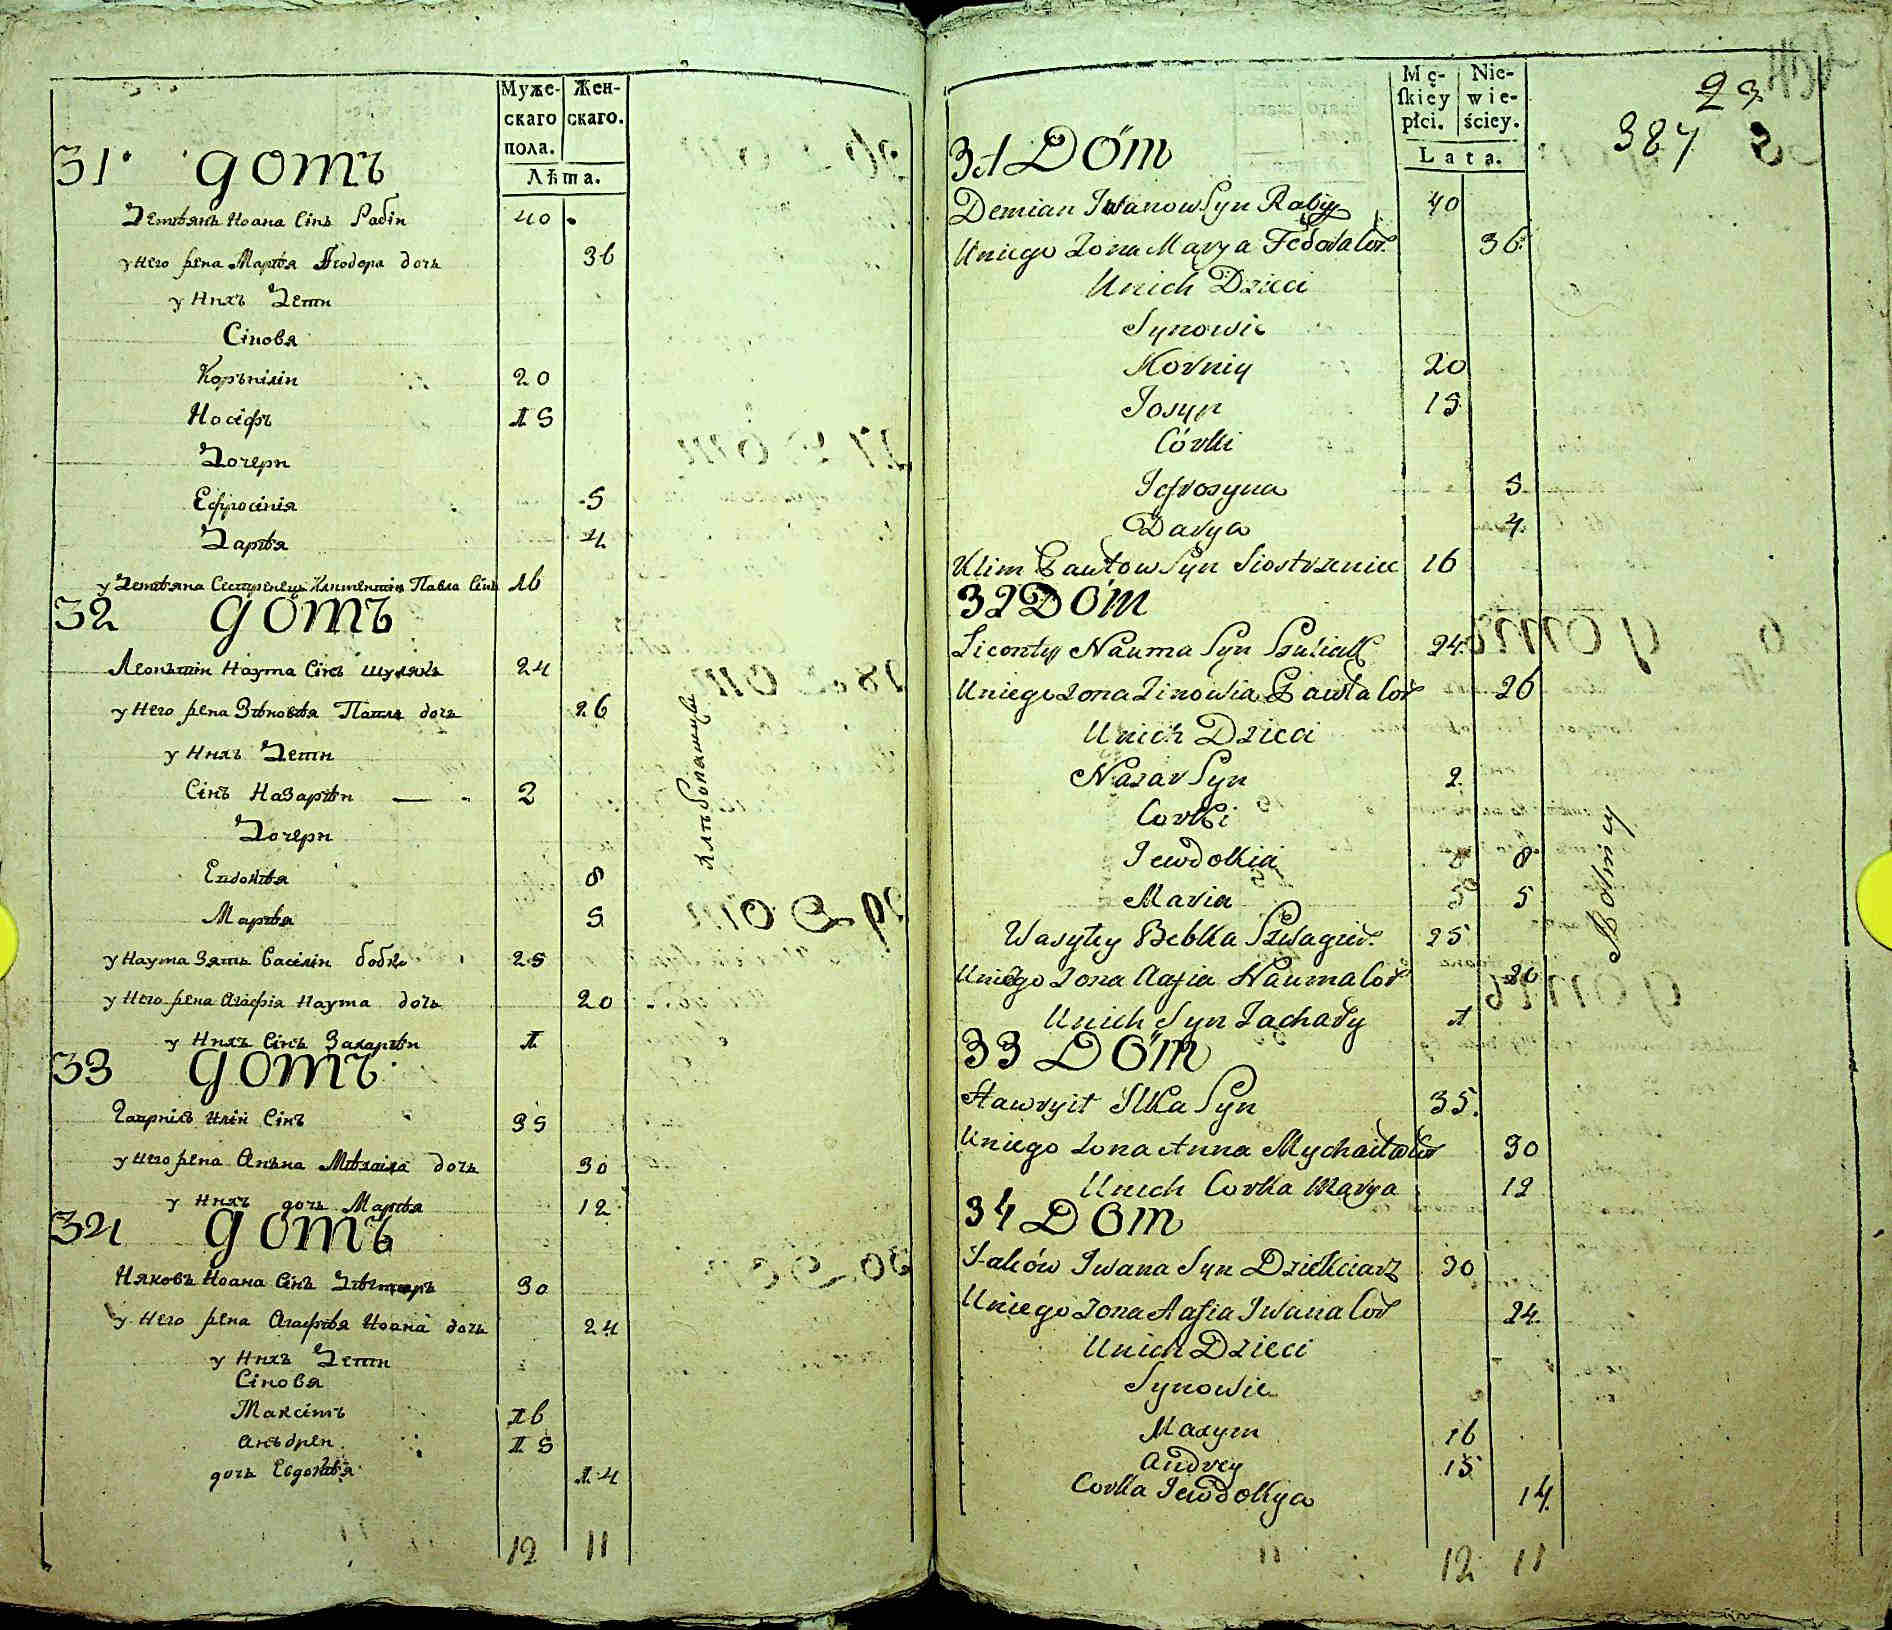 Муже-
скаго
пола.
Жен-
скаго.
Лѣта.
31 домъ
Демѣянъ Иоана Сінъ Рабій 40
у Него жена Марѣя Ѳеодора дочь 36
у Нихъ Дети
Сіновя
Коръніліи 20
Иосіфъ 15
Дочери
Ефросінія 5
Дарѣя 4
у Демѣяна Павла Сінъ 16
32 домъ
Леонътіи Наума Сінъ шулякъ 24
у Него жена Зѣновѣя Павла дочь 26
у Нихъ Дети
Сінъ Назарѣи 2
Дочери
Евдокѣя 8
Марѣя 5
у Наума Зять Васіліи бобко 25
у Него жена Агафія Наума дочь 20
у Нихъ Сінъ Захарѣи 1
33 домъ
Гавріілъ Иліи Сінъ 35
у Него жена Анъна Мѣхаіла дочь 30
у Нихъ дочь Марѣя 12
34 домъ
Ияковъ Иоана Сінъ 30
у Него жена Агафѣя Иоана дочь 24
у Нихъ Дети
Сіновя
Максімъ 16
Анъдреи 15
дочь Евдокѣя 14
12 11
Хлѣбопашцы
Mę-
ſkiey
płci.
Nie-
wie-
ściey.
Lata.
23
387 2
31 Dóm
Demian Iwanow Syn Rabiy 40
Uniego Zona Marya Fedora Cór. 36
Unich Dzieci
Synowie
Korniy 20
Josyp 15
Córki
Jefrosyna 5
Darya 4
Klim Pawłow Syn Siostrzeniec 16
32 Dóm
Liconty Nauma Syn Szuliak 24
Uniego Zona Zinowia Pawła Cór 26
Unich Dzieci
Nazar Syn 2
Corki
Jewdokia 8
Maria 5
Wasyly Bobka Szwagier 25
Uniego Zona Aafia Nauma Cór 20
Unich Syn Zachary 1
33 Dóm
Hawryił Ilka Syn 35
Uniego Zona Anna Mychaiła Cór 30
Unich Corka Marya 12
34 Dóm
Jaków Iwana Syn Dziekciarz 30
Uniego Zona Aafia Iwana Cór 24
Unich Dzieci
Synowie
Maxym 16
Andrey 15
Corka Jewdokya 14
12 11
Rolnicy